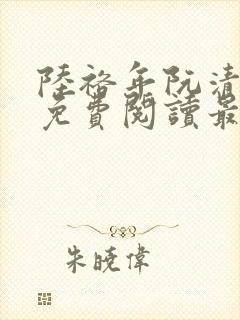 陸裕年阮清
免費閱讀最
朱曉偉